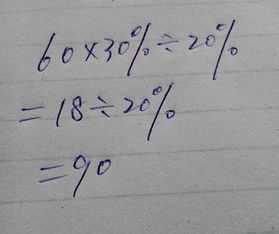 60×30%÷20%
=18÷20%
=90